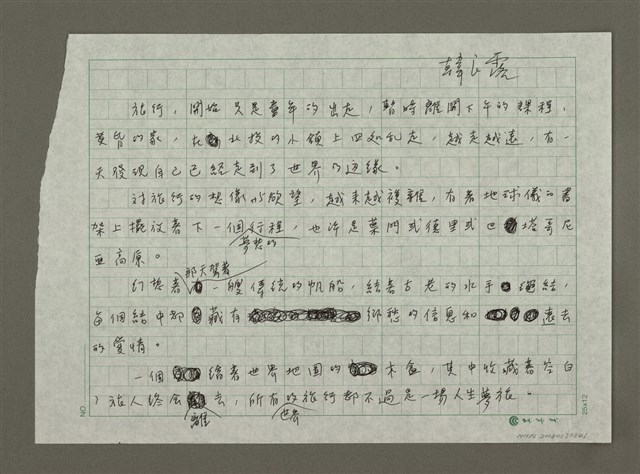 韓良露
旅行，開始只是童年的出走，暫時離開下午的課程，
黃昏的家，在北投的小嶺上四處亂走，越走越遠，有一
天發現自己已經走到了世界的邊緣。
對旅行的想像以欲望，越來越複雜，有著地球儀的書
架上擺放著下一個行程，也許是葉門或德里或巴塔哥尼
夢想的
亞高原。
那天駕著
幻想著一艘傳統的帆船，結著古老的水手繩結，
每個結中都藏有鄉愁的信息和遠去
的愛情。
一個繪著世界地圖的木盒，其中收藏著空白
，旅人終會去，所有的旅行都不過是一場人生夢旅。
離
也許
NO.
25x12